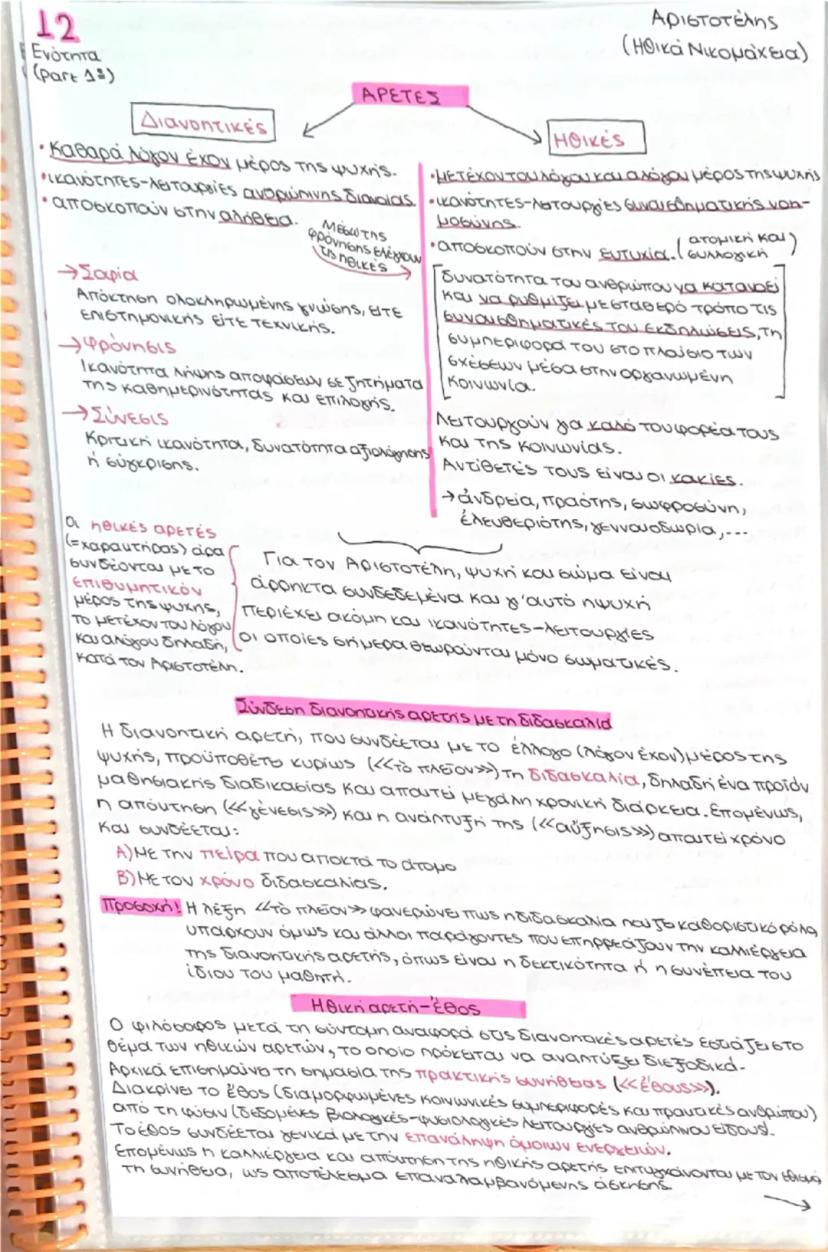 12
Ενότητα
(Part 1º)
Αριστοτέλης
(Ηθικά Νικομάχεια)
ΑΡΕΤΕΣ
Διανοητικές
• Καθαρά λόγον έχον μέρος της ψυχής.
• ικανότητες-λειτουργίες ανθρώπινης διανοίας.
• αποσκοπούν στην αλήθεια.
Μέσω της
φρόνησης ελέγχουν
τις ηθικές
→ Σοφία
Απόκτηση ολοκληρωμένης γνώσης, είτε
επιστημονικής είτε τεχνικής.
→ Φρόνησις
Ικανότητα λήψης αποφάσεων σε ζητήματα
της καθημερινότητας και επιλογής.
→ Σύνεσις
Κριτική ικανότητα, δυνατότητα αξιολόγησης
ή σύγκρισης.
Ηθικές
• μετέχον του λόγου και αλόγου μέρος της ψυχής
• ικανότητες-λειτουργίες συναισθηματικής νοη-
μοσύνης.
• αποσκοπούν στην ευτυχία. (ατομική και
συλλογική)
[δυνατότητα του ανθρώπου να κατανοεί
και να ρυθμίζει με σταθερό τρόπο τις
συναισθηματικές του εκδηλώσεις, τη
συμπεριφορά του στο πλαίσιο των
σχέσεων μέσα στην οργανωμένη
κοινωνία.]
Λειτουργούν για καλό του φορέα τους
και της κοινωνίας.
Αντίθετές τους είναι οι κακίες.
→ ἀνδρεία, πραότης, σωφροσύνη,
ἐλευθεριότης, γενναιοδωρία,...
Οι ηθικές αρετές
(=χαρακτήρας) άρα
συνδέονται με το
επιθυμητικόν
μέρος της ψυχής,
το μετέχον του λόγου
και αλόγου δηλαδή,
κατά τον Αριστοτέλη.
Για τον Αριστοτέλη, ψυχή και σώμα είναι
άρρηκτα συνδεδεμένα και γι'αυτό η ψυχή
περιέχει ακόμη και ικανότητες-λειτουργίες
οι οποίες σήμερα θεωρούνται μόνο σωματικές.
Σύνδεση διανοητικής αρετής με τη διδασκαλία
Η διανοητική αρετή, που συνδέεται με το έλλογο (λόγον έχον) μέρος της
ψυχής, προϋποθέτει κυρίως (<<τὸ πλεῖον>>) τη διδασκαλία, δηλαδή ένα προϊόν
μαθησιακής διαδικασίας και απαιτεί μεγάλη χρονική διάρκεια. Επομένως,
η απόκτηση (<<γένεσις>>) και η ανάπτυξή της (<<αὔξησις>>) απαιτεί χρόνο
και συνδέεται:
Α) Με την πείρα που αποκτά το άτομο
Β) Με τον χρόνο διδασκαλίας.
Προσοχή! Η λέξη <<τὸ πλεῖον>> φανερώνει πως η διδασκαλία παίζει καθοριστικό ρόλο,
υπάρχουν όμως και άλλοι παράγοντες που επηρρεάζουν την καλλιέργεια
της διανοητικής αρετής, όπως είναι η δεκτικότητα ή η συνέπεια του
ίδιου του μαθητή.
Ηθική αρετή-Έθος
Ο φιλόσοφος μετά τη σύντομη αναφορά στις διανοητικές αρετές εστιάζει στο
θέμα των ηθικών αρετών, το οποίο πρόκειται να αναπτύξει διεξοδικά.
Αρχικά επισημαίνει τη σημασία της πρακτικής συνήθειας (<<ἔθους>>).
Διακρίνει το ἔθος (διαμορφωμένες κοινωνικές συμπεριφορές και πρακτικές ανθρώπου)
από τη φύσιν (δεδομένες βιολογικές-φυσιολογικές λειτουργίες ανθρώπινου είδους).
Το έθος συνδέεται γενικά με την επανάληψη όμοιων ενεργειών.
Επομένως η καλλιέργεια και απόκτηση της ηθικής αρετής επιτυγχάνονται με τον εθισμό,
τη συνήθεια, ως αποτέλεσμα επαναλαμβανόμενης άσκησης.
→